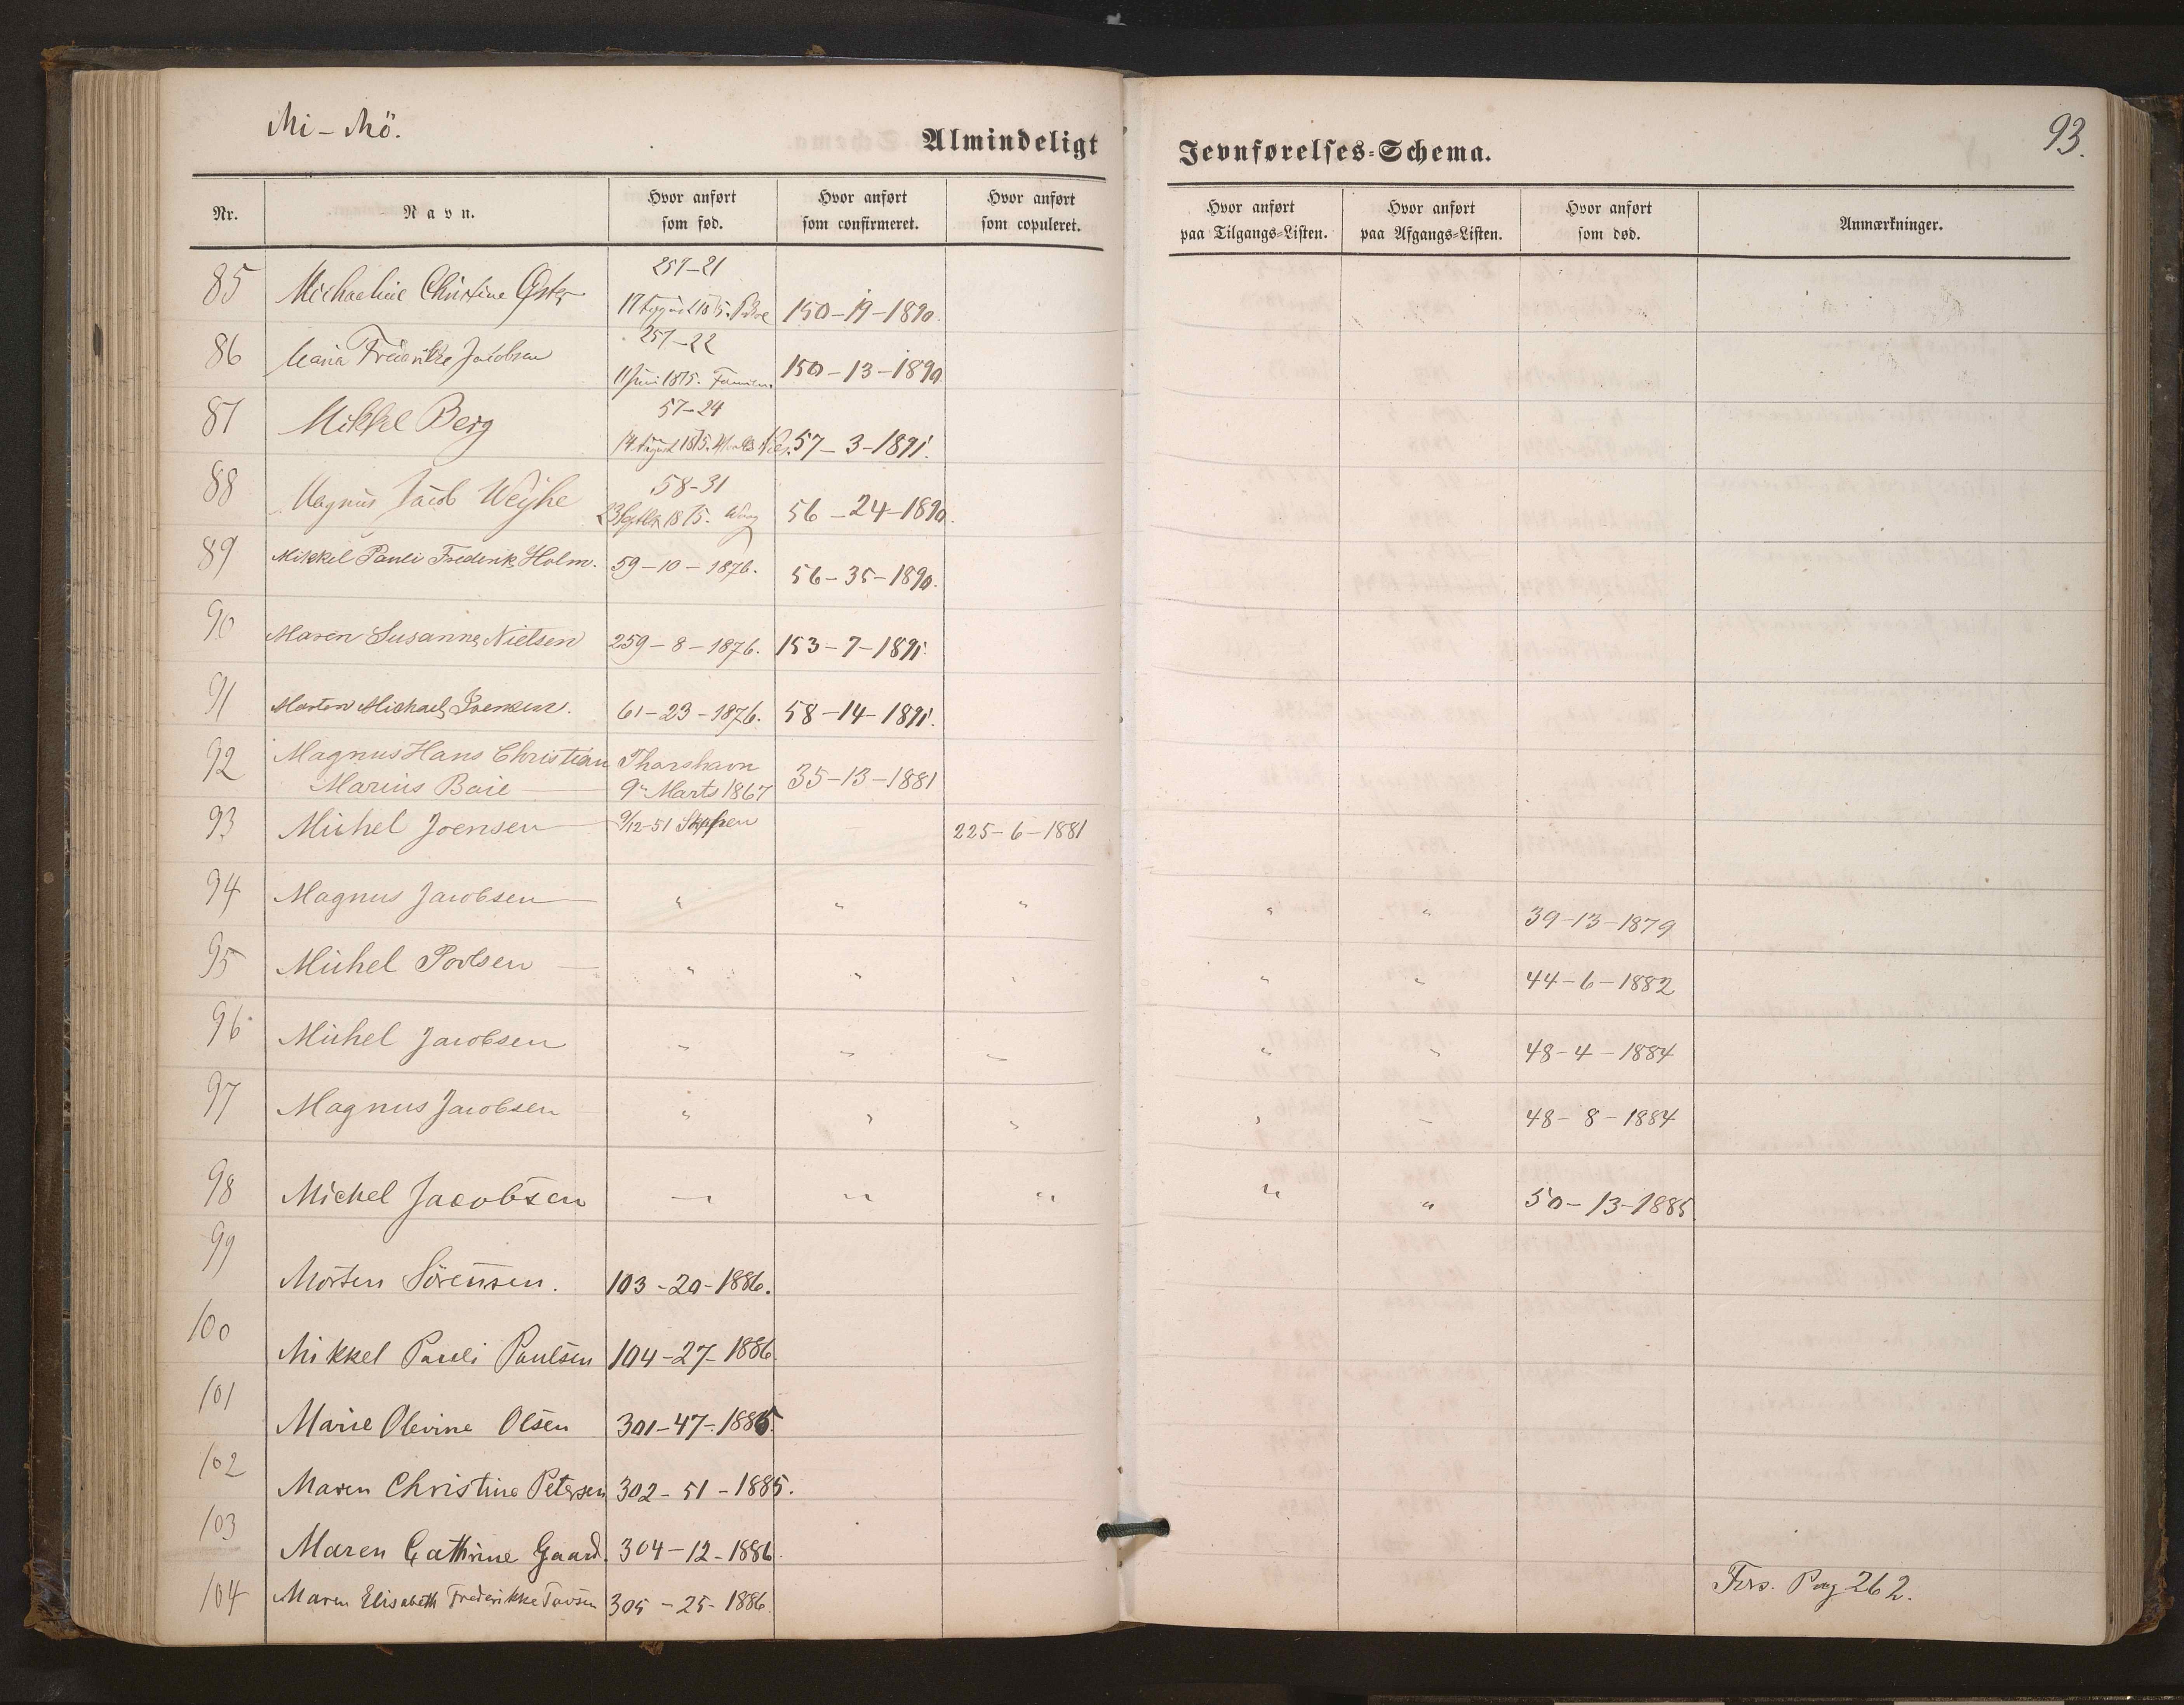 Mi - Mö.
Almindeligt
Jevnførelses-Schema.
93.
Nr.
Navn.
Hvor anført som fød.
Hvor anført som confirmeret.
Hvor anført som copuleret.
Hvor anført paa Tilgangs-Listen.
Hvor anført paa Afgangs-Listen.
Hvor anført som død.
Anmærkninger.
257-21
85 Michaeline Christine 17 August 1875. 150-19-1890.
257-22
86 Maria Fredrikke Jacobsen 11 Juni 1875. 150-13-1890
57-24
87 Mikkel Berg 14 August 1875. 57-3-1891.
58-31
88 Magnus Jacob Weyhe 23 Septbr 1875. 56-24-1890.
89 Mikkel Pauli Frederik Holm. 59-10-1876. 56-35-1890.
90 Maren Susanne Nielsen 259-8-1876. 153-7-1891.
91 Morten Michael Joensen. 61-23-1876. 58-14-1891.
92 Magnus Hans Christian Thorshavn
Marius Baie 9n Marts 1867 35-13-1881
93 Michel Joensen 9/12-51 225-6-1881
94 Magnus Jacobsen " " " " " 39-13-1879
95 Michel Poolsen " " " " " 44-6-1882
96 Michel Jacobsen " " " " " 48-4-1884
97 Magnus Jacobsen " " " " - 48-8-1884
98 Michel Jacobsen " " " " " 50-13-1885
99 Morten Sörensen. 103-20-1886.
100 Mikkel Pauli Paulsen 104-27-1886.
101 Marie Olevine Olsen 301-47-1885.
102 Maren Christine Petersen 302-51-1885.
103 Maren Cathrine Gaard. 304-12-1886.
104 Maren Elisabeth Frederikke 305-25-1886.
Pag 262.